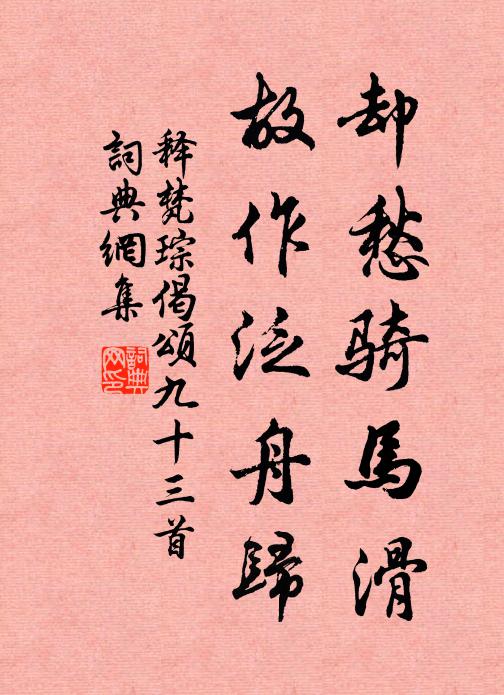 却愁骑馬滑
故作泛舟歸
释梵琮偈頌九十三首
詞典網集
詞典
网印